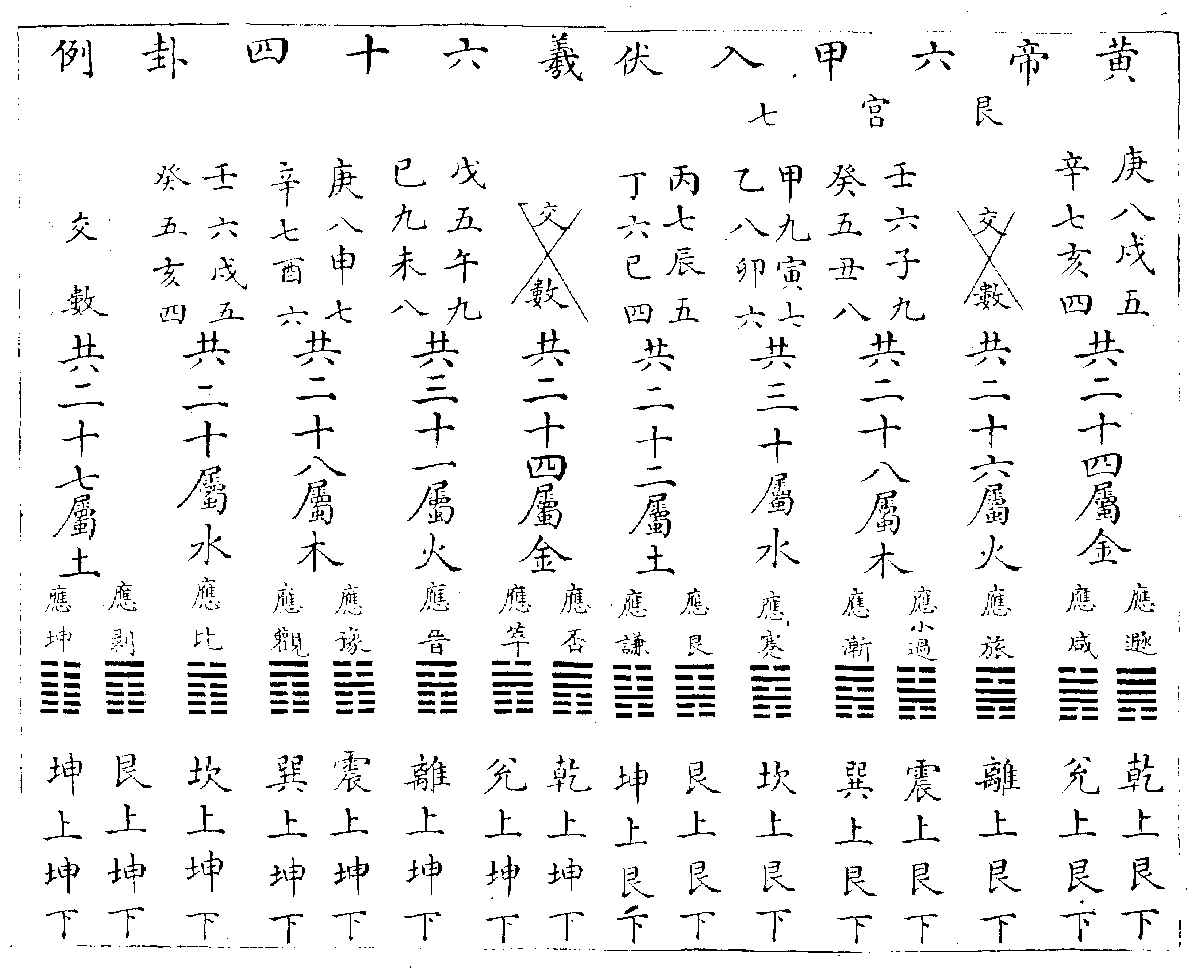 黄帝六甲入伏羲六十四卦例
艮宮七
庚八戌五
辛七亥四
共二十四屬金
應遯
乾上艮下
應咸
兌上艮下
交數
共二十六屬火
應旅
離上艮下
壬六子九
癸五丑八
共二十八屬木
應小過
震上艮下
應漸
巽上艮下
甲九寅七
乙八卯六
共三十屬水
應蹇
坎上艮下
丙七辰五
丁六巳四
共二十二屬土
應艮
艮上艮下
應謙
坤上艮下
交數
共二十四屬金
應否
乾上坤下
應萃
兌上坤下
戊五午九
己九未八
共三十一屬火
應晉
離上坤下
庚八申七
辛七酉六
共二十八屬木
應豫
震上坤下
應觀
巽上坤下
壬六戌五
癸五亥四
共二十屬水
應比
坎上坤下
交數
共二十七屬土
應剥
艮上坤下
應坤
坤上坤下